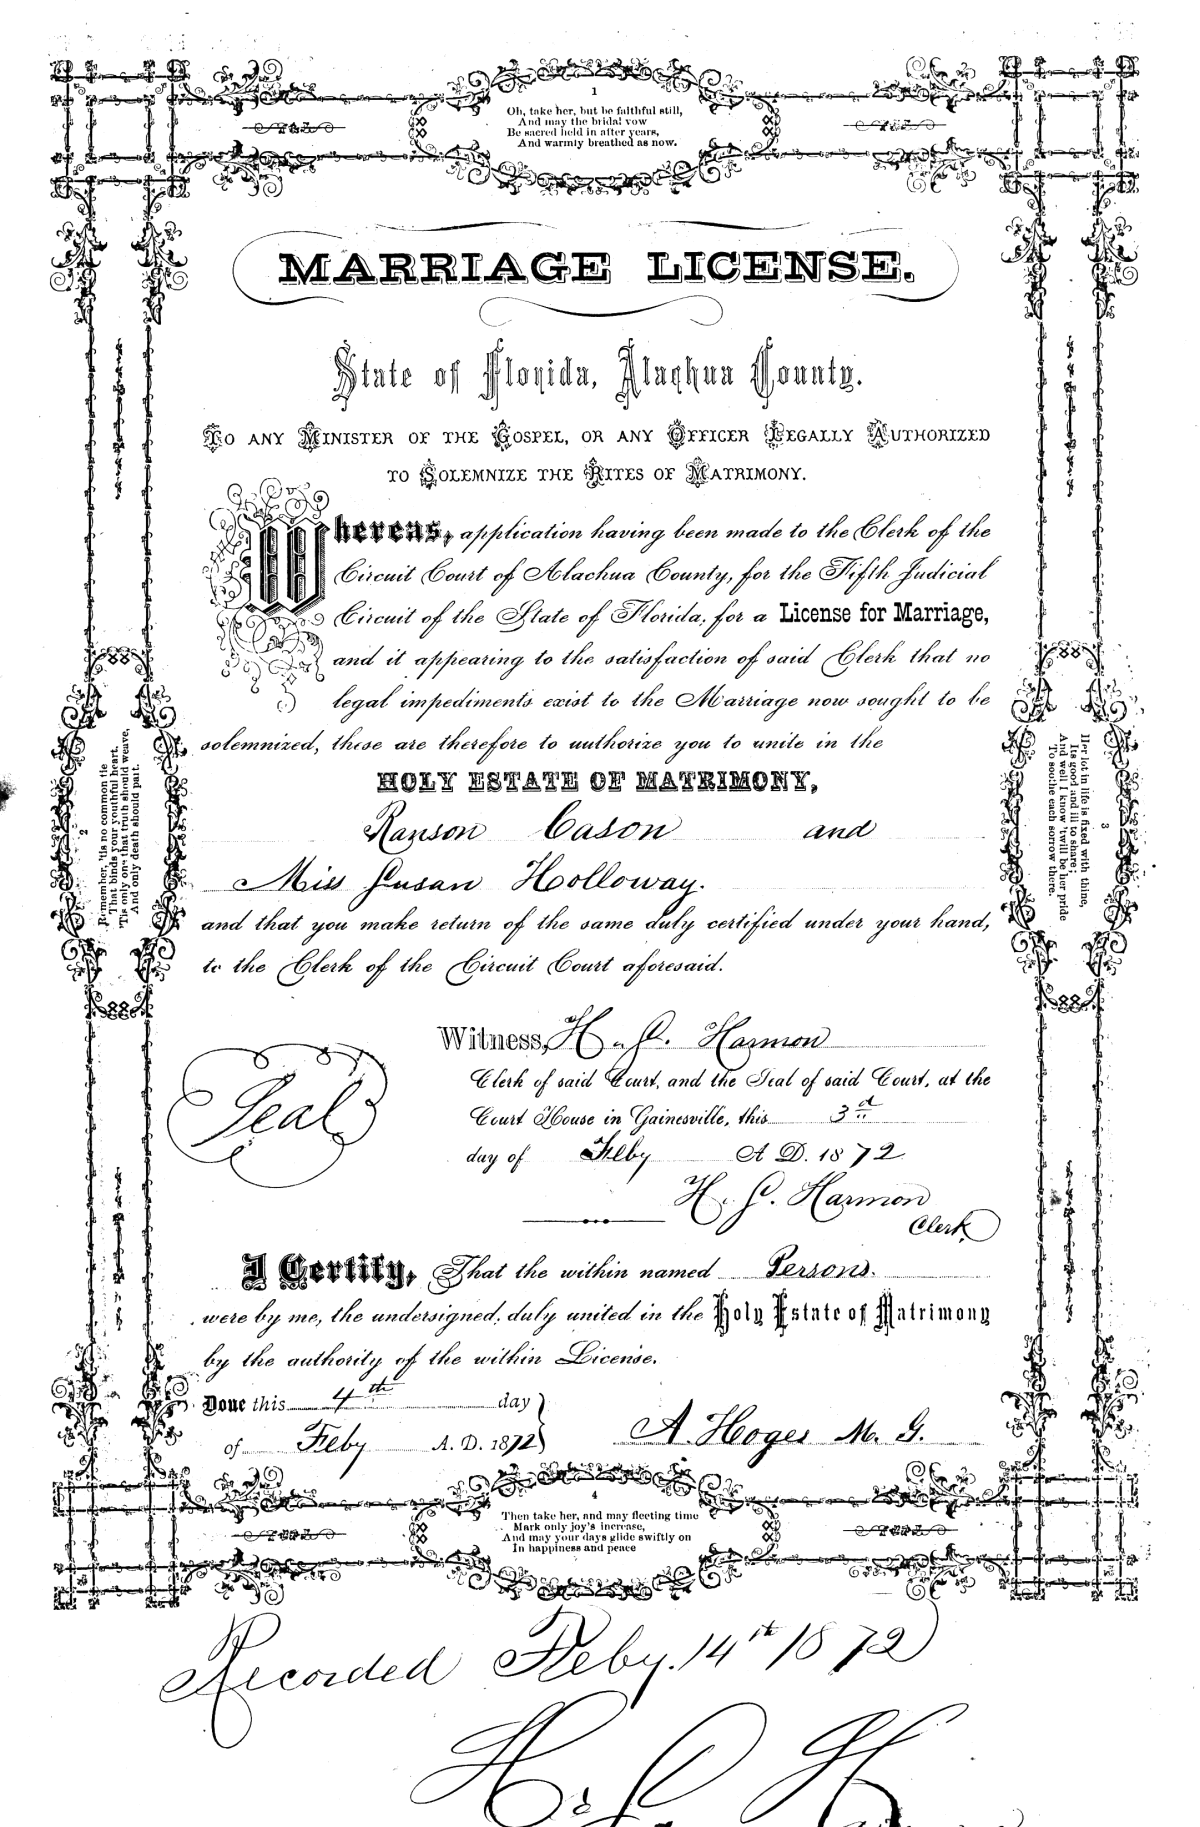 1
Oh, take her, but be faithful still,
And may the bridal vow
Be sacred held in after years,
And warmly breathed as now.
MARRIAGE LICENSE.
State of Florida, Alachua County.
TO ANY MINISTER OF THE GOSPEL, OR ANY OFFICER LEGALLY AUTHORIZED
TO SOLEMNIZE THE RITES OF MATRIMONY.
Whereas, application having been made to the Clerk of the
Circuit Court of Alachua County, for the Fifth Judicial
Circuit of the State of Florida, for a License for Marriage,
and it appearing to the satisfaction of said Clerk that no
legal impediments exist to the Marriage now sought to be
solemnized, these are therefore to authorize you to unite in the
HOLY ESTATE OF MATRIMONY,
Ranson Cason and
Miss Susan Holloway.
and that you make return of the same duly certified under your hand,
to the Clerk of the Circuit Court aforesaid.
Witness, H. C. Harmon
Clerk of said Court, and the Seal of said Court, at the
Court House in Gainesville, this 3d
day of Feby A D. 1872
Seal
H. C. Harmon
Clerk
I Certify, That the within named Persons.
were by me, the undersigned, duly united in the Holy Estate of Matrimony
by the authority of the within License.
Done this 4th day
of Feby A. D. 1872
A. Hoges M. G.
2
Remember, 'tis no common tie
That binds your youthful heart,
'Tis only one that truth should weave,
And only death should part.
3
Her lot in life is fixed with thine,
Its good and ill to share;
And well I know 'twill be her pride
To soothe each sorrow there.
4
Then take her, and may fleeting time
Mark only joy's increase,
And may your days glide swiftly on
In happiness and peace
Recorded Feby. 14th 1872
H. C. Harmon